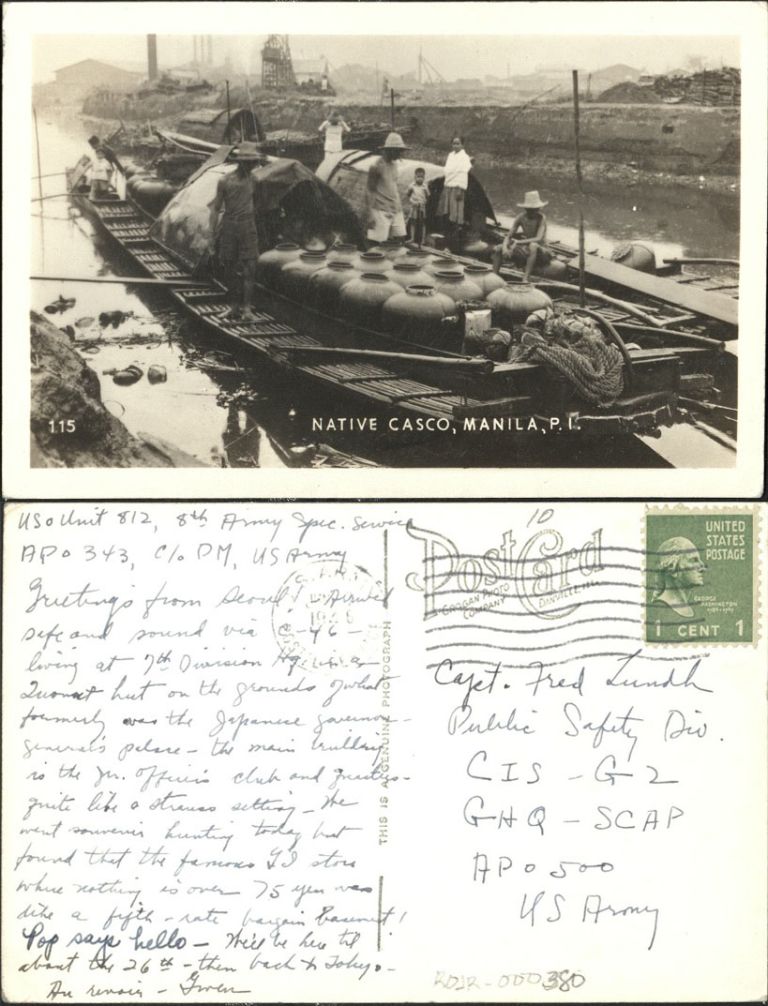 115
NATIVE CASCO, MANILA, P.I.
USO Unit 812, 8th Army Spec. Service
APO 343, C/o PM, US Army
Greetings from Seoul! Arrived
safe and sound via C-46 -
living at 7th Division Hq in a
Quonset hut on the grounds of what
formerly was the Japanese governor-
general's palace - the main building
is the Jr. officers club and quarters-
quite like a Strauss setting - We
went souvenir hunting today but
found that the famous GI store
where nothing is over 75 yen was
like a fifth-rate bargain basement!
Pop says hello - We'll be here til
about the 26th - then back to Tokyo -
Au revoir - Gwen
THIS IS A GENUINE PHOTOGRAPH
10
Post Card
GROGAN PHOTO
COMPANY
DANVILLE, ILL.
UNITED
STATES
POSTAGE
GEORGE
WASHINGTON
1789-1797
1 CENT 1
Capt. Fred Lundh
Public Safety Div.
CIS - G2
GHQ - SCAP
APO 500
US Army
RDJR-000380